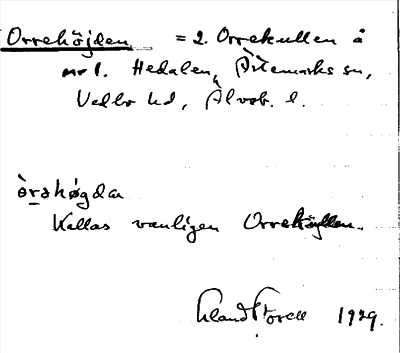 Orrehöjden = 2. Orrekullen å
nr 1. Hedalen, Ärtemarks sn,
Vedbo hd, Älvsb. l.
òrəhø̀gda
Kallas vanligen Orrekullen.
1929.